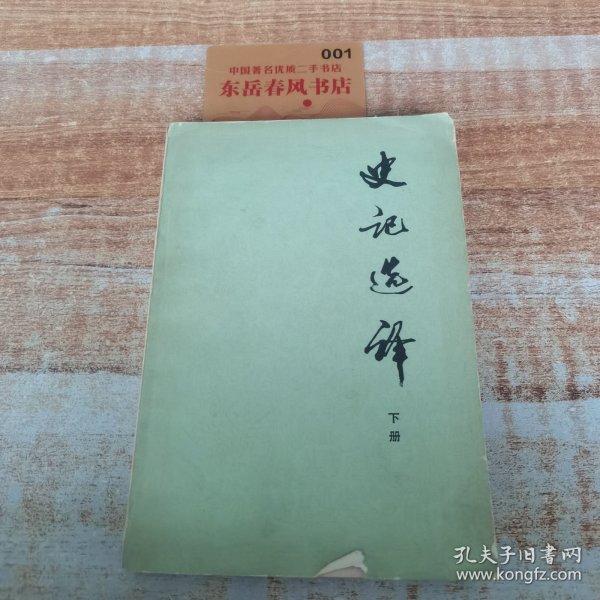 001
中国著名优质二手书店
东岳春风书店
史记选译
下册
孔夫子旧书网
www.kongfz.com